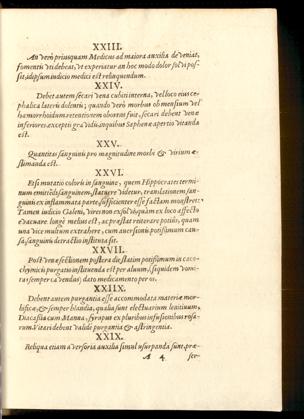 XXIII.
An verò priusquam Medicus ad maiora auxilia deueniat,
fomentis uti debeat, ut experiatur an hoc modo dolor solui pos-
sit, id ipsum iudicio medici est relinquendum.
XXIV.
Debet autem secari vena cubiti interna, vel loco eius ce-
phalica lateris dolentis; quando verò morbus ob mensium vel
hæmorrhoidum retentionem obortus fuit, secari debent venæ
inferiores, exceptis grauidis in quibus Saphenæ apertio vitanda
est.
XXV.
Quantitas sanguinis pro magnitudine morbi & virium æ-
stimanda est.
XXVI.
Etsi mutatio coloris in sanguine, quem Hippocrates termi-
num emittẽdi sanguinem statuere videtur, translationem san-
guinis ex inflammata parte sufficienter esse factam monstret:
Tamen iudicio Galeni, vires non exsoluẽ quàm ex loco affecto
Evacuare longè melius est, ac præstat reiterare potiùs, quam
una vice multum extrahere, cum auersionis potissimum cau-
sa, sanguinis detractio instituta sit.
XXVII.
Post venæ sectionem postera die statim potissimum in caco-
chymicis purgatio instituenda est per aluum, (siquidem vomi-
tus semper cauendus) dato medicamento per os.
XXIIX.
Debent autem purgantia esse accommodata materiæ mor-
bificæ, & semper blandia, qualia sunt electuarium lenitiuum,
Diacassia cum Manna, syrupus ex pluribus infusionibus rosa-
rum. Vitari debent valide purgantia & astringentia.
XXIX.
Reliqua etiam aversoria auxilia simul usurpanda sunt, præ-
A 4 ser-